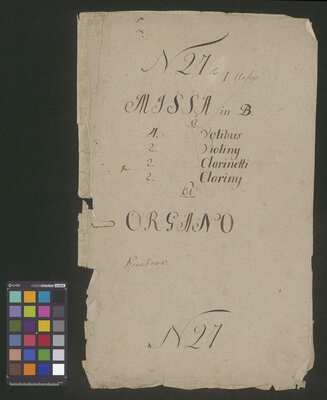 N 27
MISSA in B.
a
4. Votibus
2 Violiny
2 Clarinetti
2 Clariny
et
ORGANO
N 27